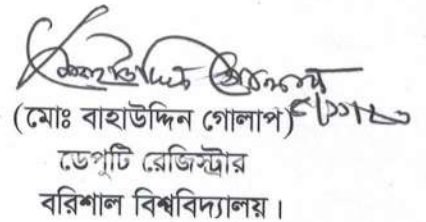 (মোঃ বাহাউদ্দিন গোলাপ)
ডেপুটি রেজিস্ট্রার
বরিশাল বিশ্ববিদ্যালয়।